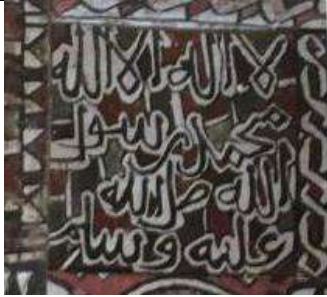 لا اله الا الله
محمد رسول
الله صلى الله
عليه وسلم